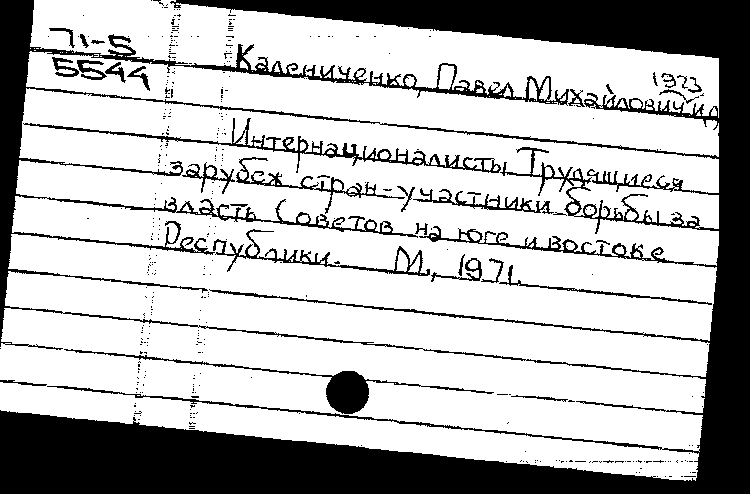 71-5
5544
1923
Калениченко, Павел Михайлович и др
Интернационалисты Трудящиеся
зарубеж стран-участники борьбы за
власть Советов на юге и востоке
Республики. М., 1971.